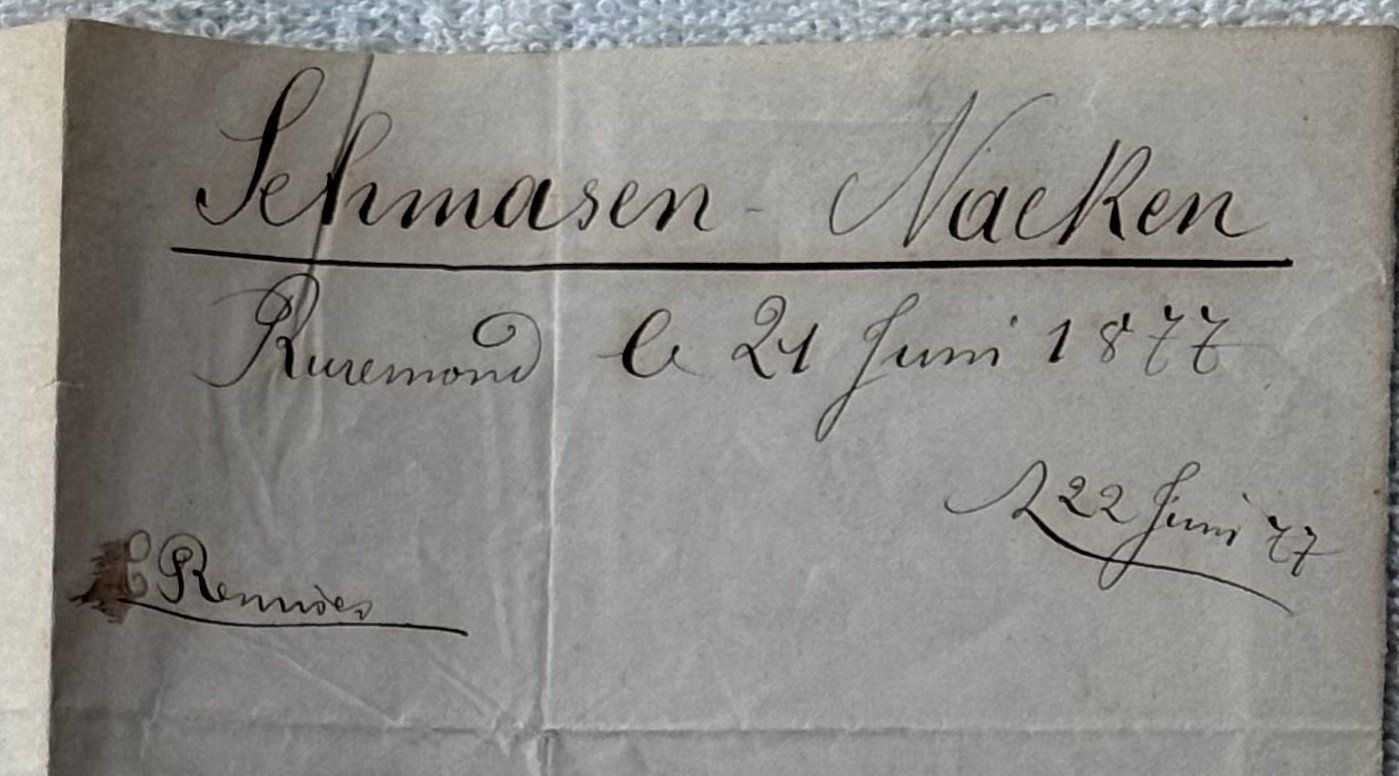 Schmasen - Nacken
Ruremond le 21 Juni 1877
R 22 Juni 77